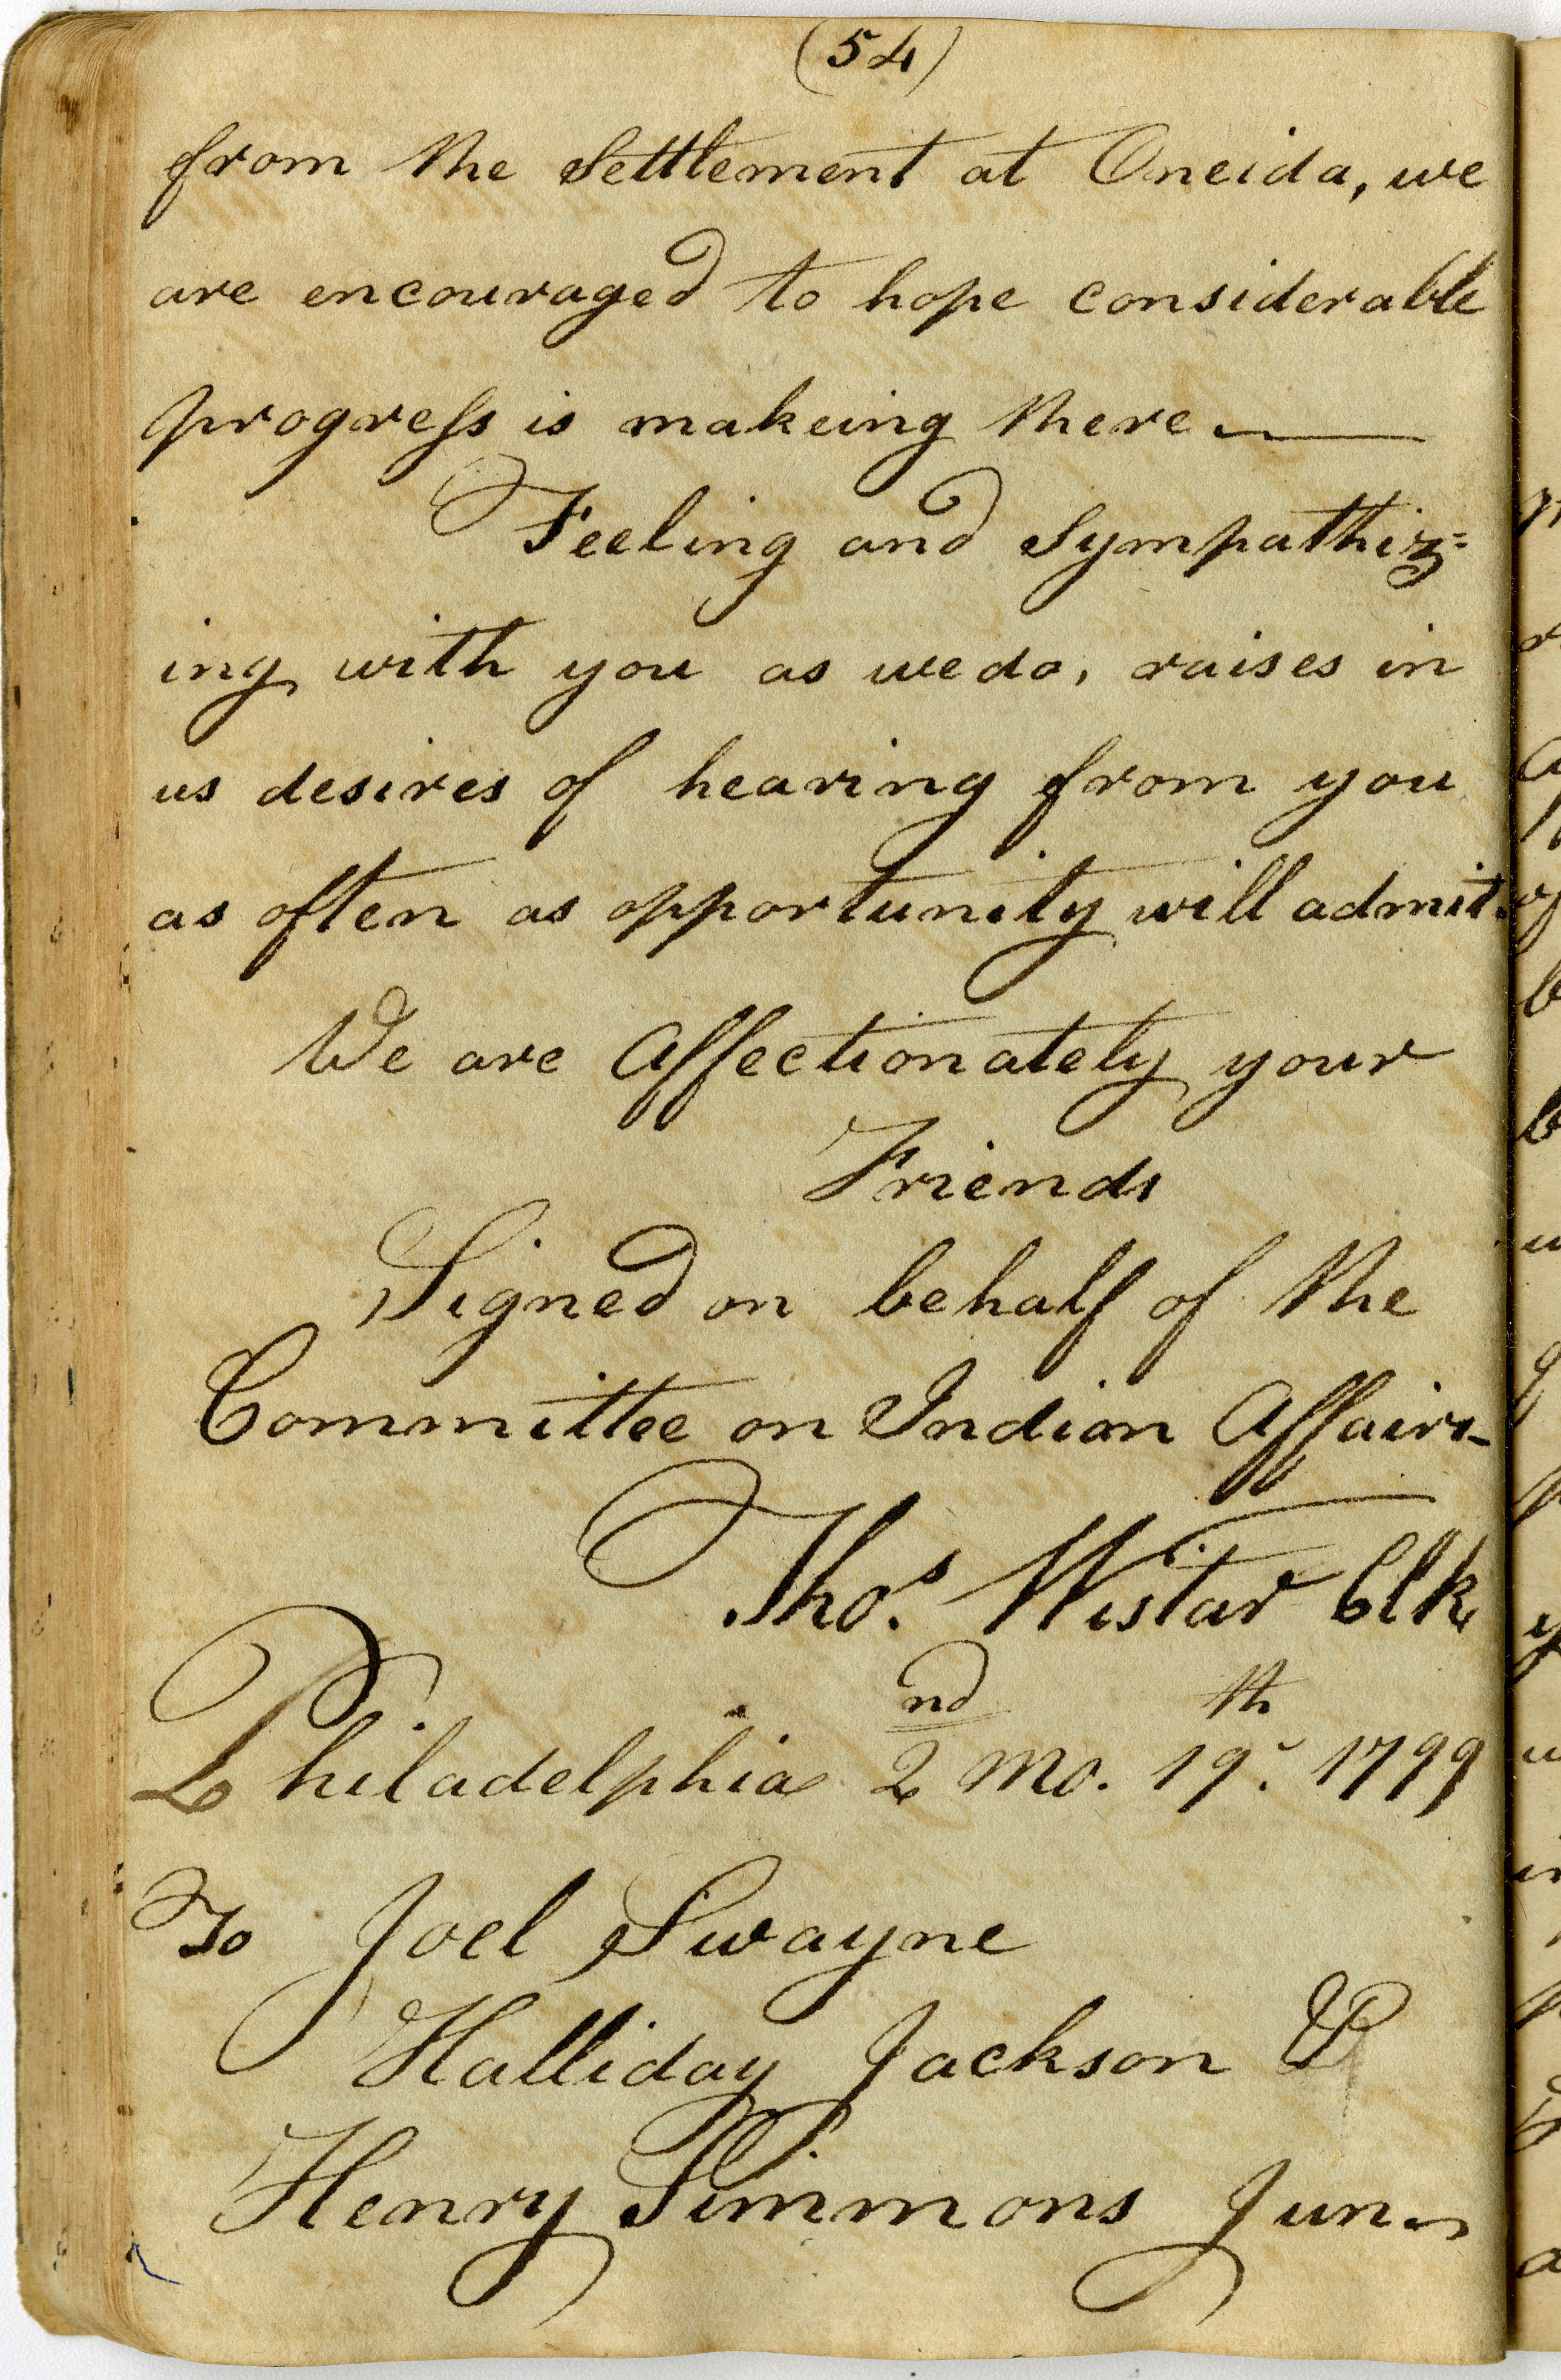 (54)
from the Settlement at Oneida, we
are encouraged to hope considerable
progress is makeing there
Feeling and Sympathiz=
ing with you as we do, raises in
us desires of hearing from you
as often as opportunity will admit.
We are Affectionately your
Friends
Signed on behalf of the
Committee on Indian Affairs
Thos. Wistar Clk
Philadelphia 2nd mo. 19th. 1799
To Joel Swayne
Halliday Jackson &
Henry Simmons Jun